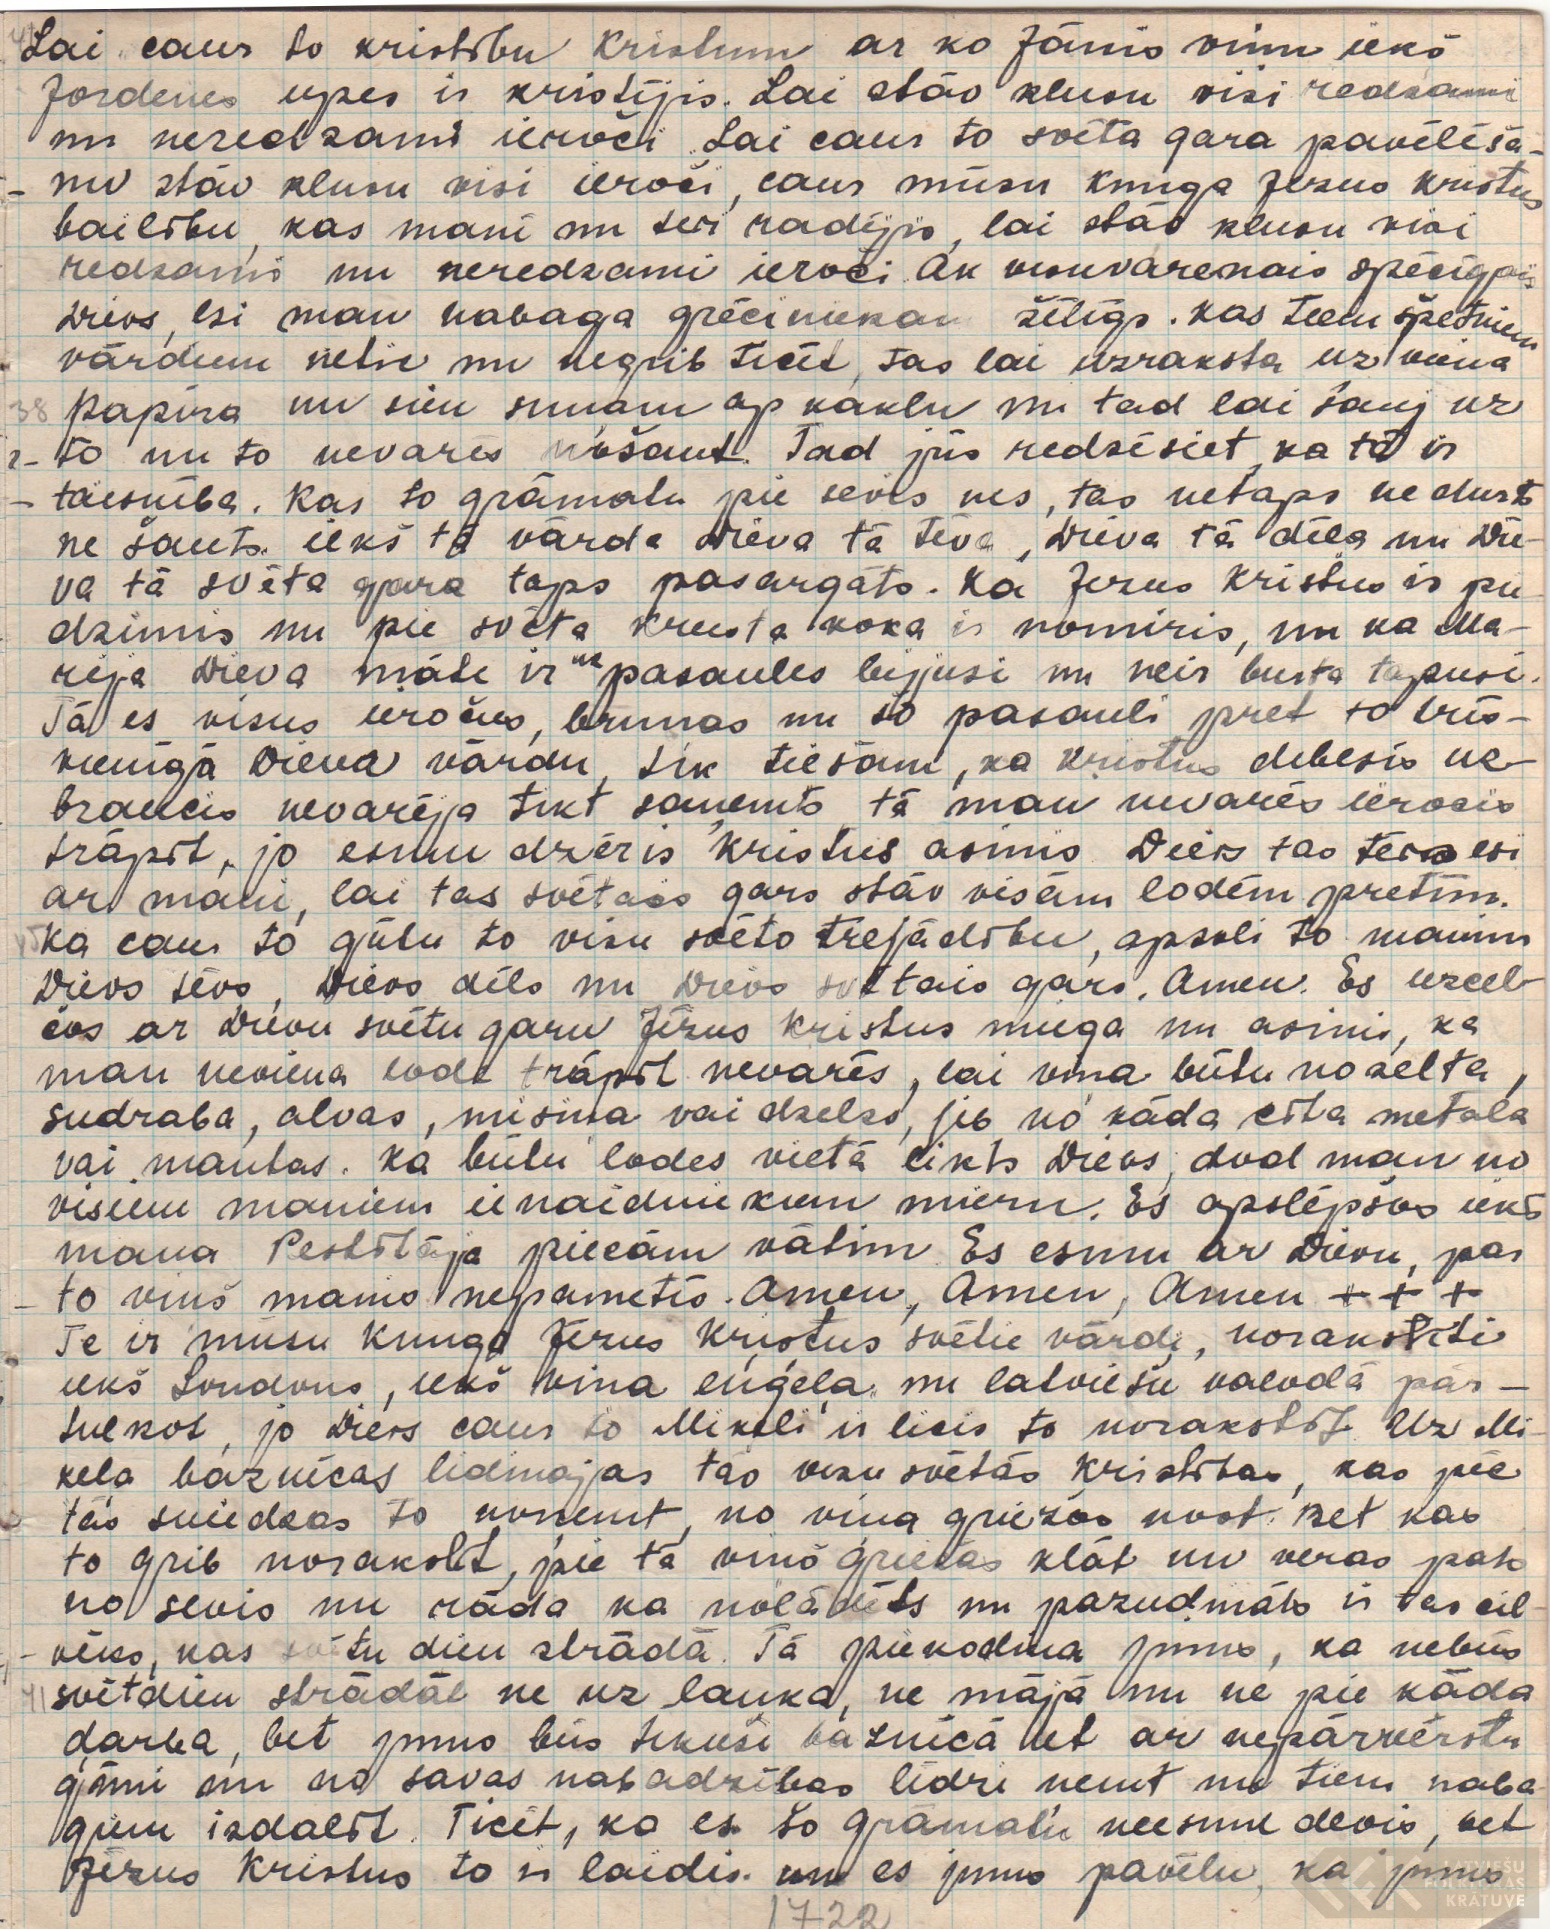 Lai caur to kristību Kristum ar ko Jānis viņu iekš
Jordenes upes ir kristījis. Lai stāv klusu visi redzami
un neredzami ieroči. Lai caur to svēta gara pavēlēša-
nu stāv klusu visi ieroči, caur mūsu Kunga Jezus Kristus
bailību, kas mani un seri radījis, lai stāv klusu visi
redzami un neredzami ieroči. Ak visuvarenais spēcīgais
Dievs, esi man nabaga grēciniekam žēlīgs. Kas tiem špetniem
vārdiem netic un negrib ticēt, tas lai uzraksta uz viena
38 papīra un sien sunam ap kaklu un tad lai šauj uz
to un to nevarēs nošaut. Tad jūs redzēsiet, ka tā ir
taisnība. Kas to grāmatu pie sevis nes, tas netaps ne durts
ne šauts. iekš tā vārda Dieva tā tēva, Dieva tā dēla un Die-
va tā svēta gara taps pasargāts. Ka Jezus Kristus ir pie-
dzimis un pie svēta krusta koka ir nomiris, un ka Ma-
rija Dieva māte ir uz pasaules bijusi un neir busta tapusi.
Tā es visus ieročus, brunas un šo pasauli pret to trīs-
kienīgā Dieva vārdu, tik tiešām, ka Kristus debesīs uz-
braucis nevarēja tikt saņemts tā man nevarēs ierocis
trāpīt, jo esmu dzēris Kristus asinis Dievs tas tēvs esi
ar mani, lai tas svētais gars stāv visām lodēm pretim.
Ka caur to gūtu to visu svēto trejādību, apsoli to manim
Dievs tēvs, Dievs dēls un Dievs svētais gars. Amen. Es uzcel-
ēos ar Dievu svētu garu Jēzus Kristus miega un asinis, ka
man neviena lode trāpīt nevarēs, lai viņa būtu no zelta,
sudraba, alvas, misiņa vai dzelzs, jeb no kāda cita metala
vai mantas. Ka būtu lodes vietā likts Dievs, dod man no
visiem maniem ienaidniekiem mieru. Es apslēpšos iekš
mana Pestītāja piecām vātim Es esmu ar Dievu, par
to viņš manis nepametīs. Amen, Amen, Amen + + +
Te ir mūsu Kunga Jēzus Kristus svētie vārdi, norakstīti
iekš Londonu, iekš viņa eņģeļa un latviešu valodā pār-
tulkot, jo Dievs caur to Mikeli ir licis to norakstīt. Uz Mi-
ķeļa baznīcas lidmajas tās visu svētās Kristības, kas pie
tās sniedzas to noņemt, no viņa griežas nost. Bet kas
to grib norakstīt, pie tā viņš griežas klāt un veras pats
no sevis un rāda ka nolādēts un pazudināts ir tas cil-
vēks, kas svētu dien strādā. Tā piekodina jums, ka nebūs
svētdien strādāt ne uz lauka, ne mājā un ne pie kāda
darba, bet jums būs tikuši baznīcā iet ar nepārvērstu
ģīmi un no savas nabadzības līdzi ņemt un tiem naba-
giem izdalīt. Ticēt, ka es šo grāmatu neesmu devis, bet
Jēzus Kristus to ir laidis. un es jums pavēlu, ka jums
1722
LATVIEŠU
FOLKLORAS
KRĀTUVE